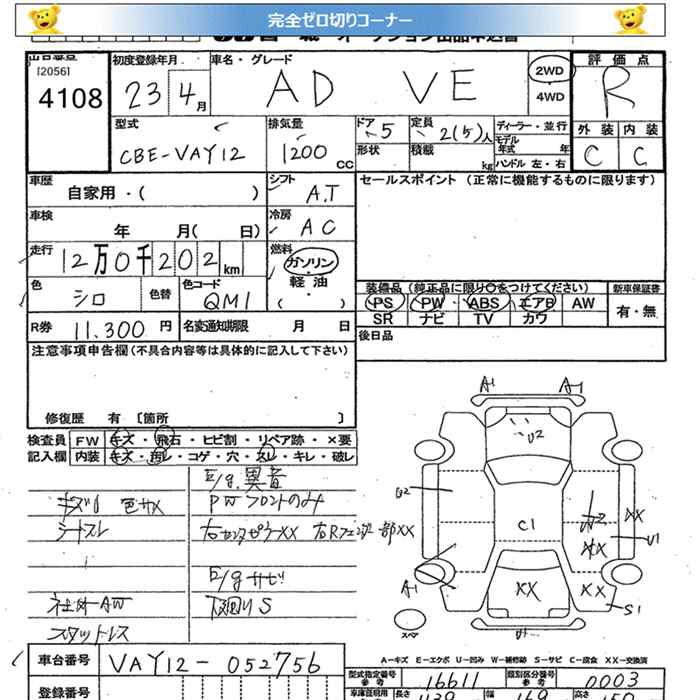 完全ゼロ切りコーナー
オークション出品申込書
出品番号 初度登録年月 車名・グレード 評価点
[2056]
4108 23 4月 AD VE 2WD 4WD R
型式 排気量 ドア 5 定員 2(5)人 ディーラー・並行 外装 内装
CBE-VAY12 1200 CC 形状 積載 kg モデル年式 年 C C
ハンドル 左・右
車歴 シフト セールスポイント (正常に機能するものに限ります)
自家用・( ) A.T
車検 冷房
年 月( 日) AC
走行 燃料
12万0千202km ガソリン・軽油・( )
色 シロ 色替 色コード QM1
装備品 (純正品に限り○をつけてください) 新車保証書
PS PW ABS エアB AW 有・無
SR ナビ TV カワ
R券 11,300円 名変通知期限 月 日
後日品
注意事項申告欄(不具合内容等は具体的に記入して下さい)
修復歴 有 [箇所 ]
検査員 FW キズ・飛石・ヒビ割・リペア跡・×要
記入欄 内装 キズ・汚レ・コゲ・穴・スレ・キレ・破レ
E/g異音
キズ 色サメ PWフロントのみ
シートスレ 部XX
E/gサビ
社外AW 下廻りS
スタットレス
A1 A1
U2
U2 C1 XX U1
XX
A1 XX XX S1
スペア U1
A-キズ E-エクボ U-凹み W-補修跡 S-サビ C-腐食 XX-交換済
車台番号 VAY12-052756
型式指定番号 16611 類別区分番号 0003
登録番号 長さ 幅 169 高さ